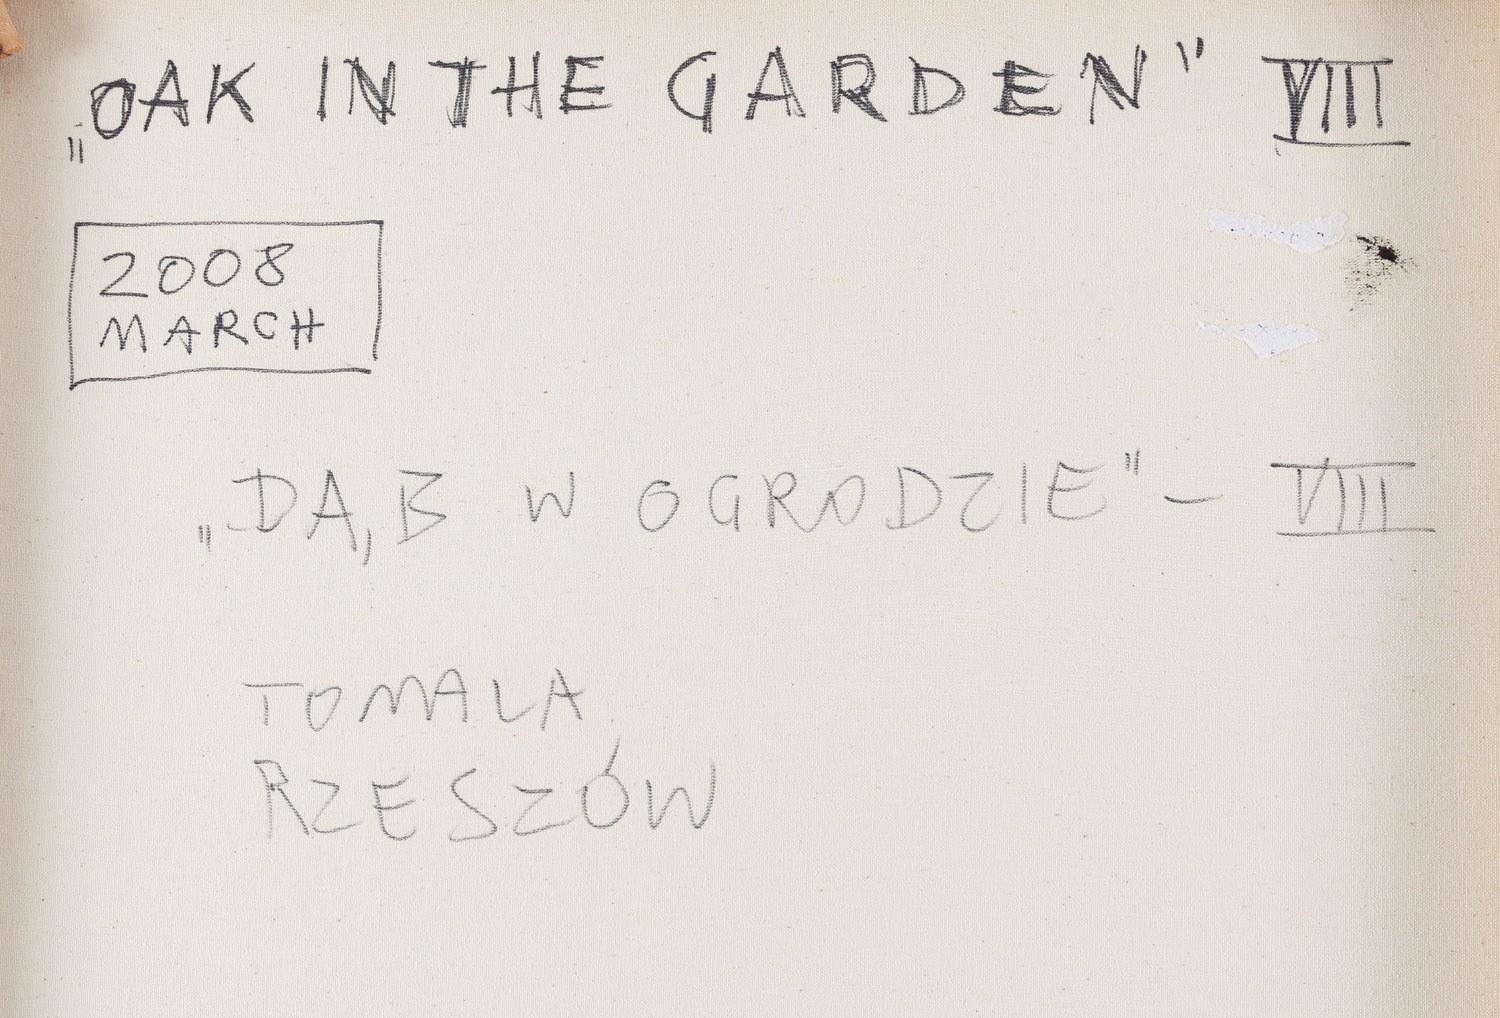 „OAK IN THE GARDEN” VIII
2008
MARCH
„DĄB W OGRODZIE” – VIII
TOMALA
RZESZÓW